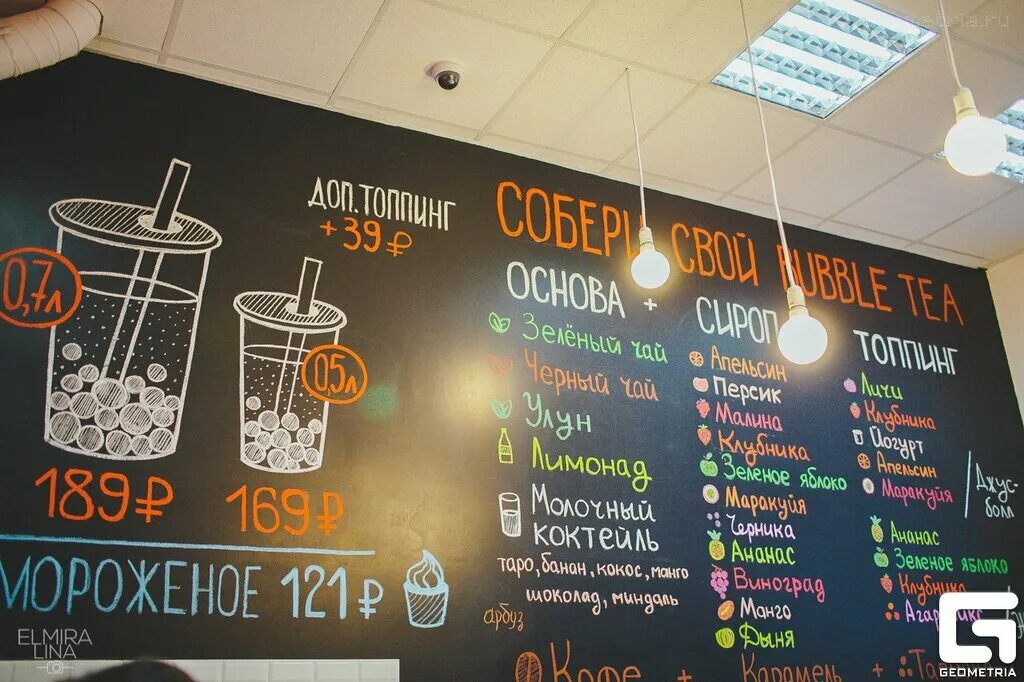 0,7л
ДОП.ТОППИНГ
+39₽
0,5л
189₽
169₽
МОРОЖЕНОЕ 121₽
СОБЕРИ СВОЙ BUBBLE TEA
ОСНОВА +
Зелёный чай
Черный чай
Улун
Лимонад
Молочный
коктейль
таро, банан, кокос, манго
шоколад, миндаль
арбуз
СИРОП
Апельсин
Персик
Малина
Клубника
Зеленое яблоко
Маракуйя
Черника
Ананас
Виноград
Манго
Дыня
ТОППИНГ
Личи
Клубника
Йогурт
Апельсин
Маракуйя
Джус-
болл
Ананас
Зеленое яблоко
Клубника
Кофе + Карамель +
ELMIRA
LINA
GEOMETRIA